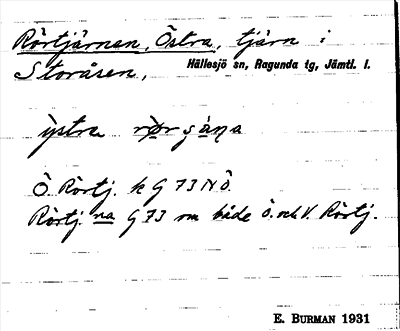 Rörtjärnen, Östra, tjärn i
Storåsen,
Hällesjö sn, Ragunda tg, Jämtl. l.
ỳstra rø̀rʂàɳa
Ö. Rörtj. k G 73 N Ö.
Rörtj. na G 73 om både Ö. och V. Rörtj.
E. BURMAN 1931